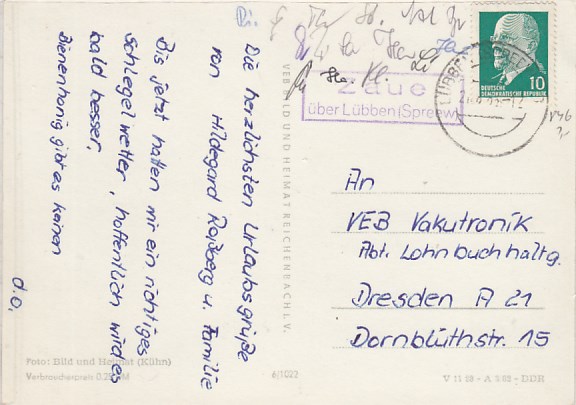 Die herzlichsten Urlaubsgrüße
von Hildegard Raßberg u. Familie
Bis jetzt hatten wir ein richtiges
Schlegel wetter, hoffentlich wird es
bald besser.
Bienenhonig gibt es keinen
d.O.
VEB BILD UND HEIMAT REICHENBACH i. V.
DEUTSCHE
DEMOKRATISCHE REPUBLIK
10
Zaue
über Lübben (Spreew)
An
VEB Vakutronik
Abt. Lohnbuchhaltg.
Dresden A 21
Dornblüthstr. 15
Foto: Bild und Heimat (Kühn)
Verbraucherpreis
6/1022
V 11 50 - A 3/68 - DDR